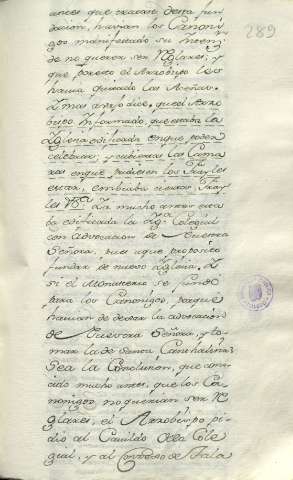 289
antes que tratase desta fun-
dacion, havian los Canoni-
gos manifestado su inten-
de no querer ser Reglares, y
que por esto el Arzobispo les
havia quitado las
Y mas abajo dice, que el Arzo-
bispo Informado que estaba la
Iglesia edificada en que poder
celebrar, y cubiertas las Cama-
ras en que pudiesen los Frayles
estar, embiaba ciertos Fray-
les &c. Ya mucho antes esta-
ba edificada la Igl. Colegial
con advocacion de Nuestra
Señora, pues a que proposito
fundar de nuevo Iglesia. Y
si el Monasterio se fundó
para los Canonigos, porque
havian de dexar la advocacion
de Nuestra Señora, y to-
mar la de Santa Cathalina
Sea la Conclusion, que cono-
cido mucho antes, que los Ca-
nonigos no querian ser Re-
glares, el Arzobispo pi-
dio al Cavildo de la Cole-
gial, y al Consejo de Tala